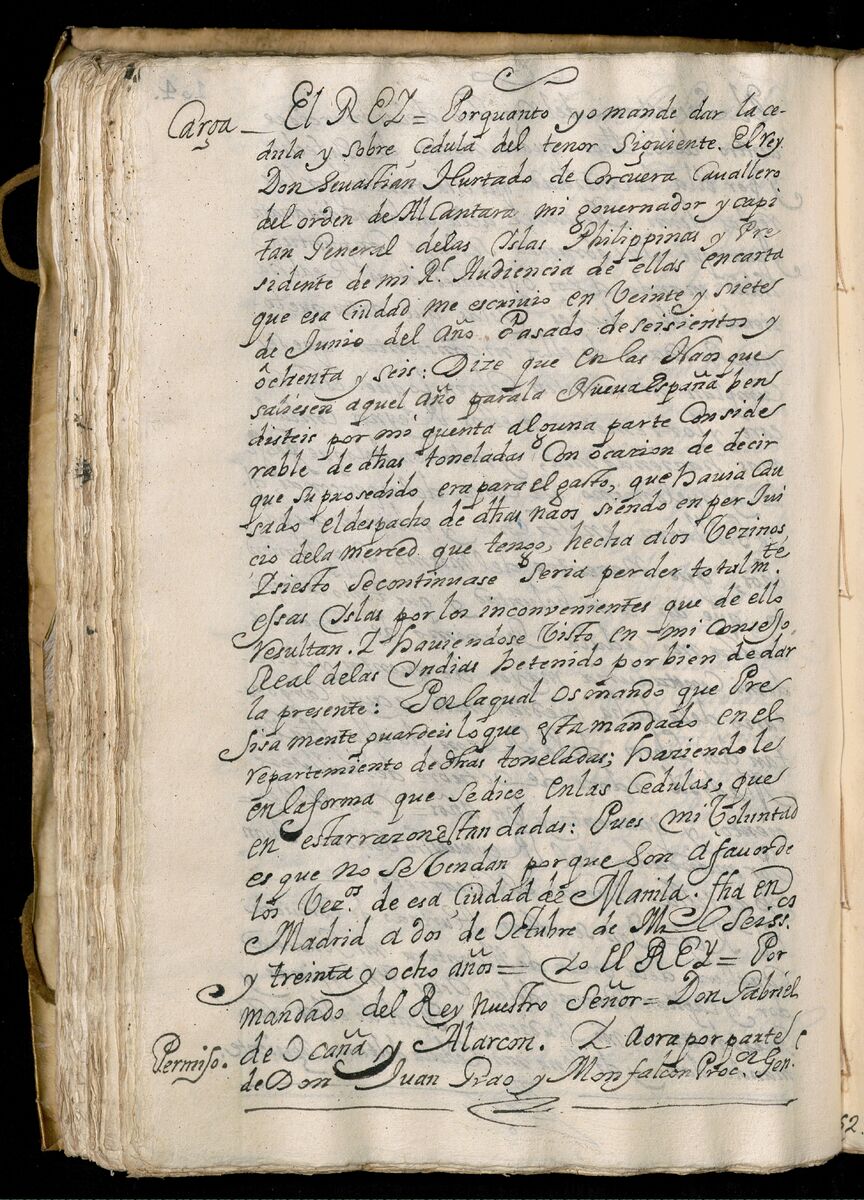 Carga — El REZ = Porquanto yo mande dar la ce-
dula y sobre cedula del tenor siguiente. El rey
Don Sevastian Hurtado de Corcuera Cavallero
del orden de Alcantara mi governador y capi
tan General delas Islas Philippinas y Pre
sidente de mi Rˡ. Audiencia de ellas encarta
que esa Ciudad me escrivio en Veinte y siete
de Junio del Año Pasado de seisientos y
ôchenta y seis: Dize que en las Naos que
saliesen aquel Año parala Nueva españa ben
disteis por mi quenta alguna parte Conside
rable de dhas toneladas Con ocazion de decir
que su prosedido era para el gasto, que havia Cau
sado el despacho de dhas naos siendo en per Jui
cio dela merced que tengo, hecha alos Vezinos,
Z siesto secontinuase seria perder totalmᵗᵉ.
essas Islas por los inconvenientes que de ello
resultan. Z haviendose Visto en mi Consejo
Real delas Indias hetenido por bien de dar
la presente: Por laqual os mando que Pre
sisa mente guardeis lo que esta mandado en el
repartemiento de dhas toneladas; haziendole
en la forma que se dice en las Cedulas, que
en estarrazon estan dadas: Pues mi Voluntad
es que no se Vendan porque son a favor de
los Vezᵒˢ. de esa Ciudad de Manila. fha en
Madrid a dos de Octubre de Mil Seissᶜᵒˢ.
y treinta y ocho años = Yo El REY = Por
mandado del Rey nuestro Señor = Don Gabriel
de Ocaña y Alarcon. Z aora por parte
Permiso. de Don Juan Grao y Monfalcon Procᵒʳ. Gen.
52.